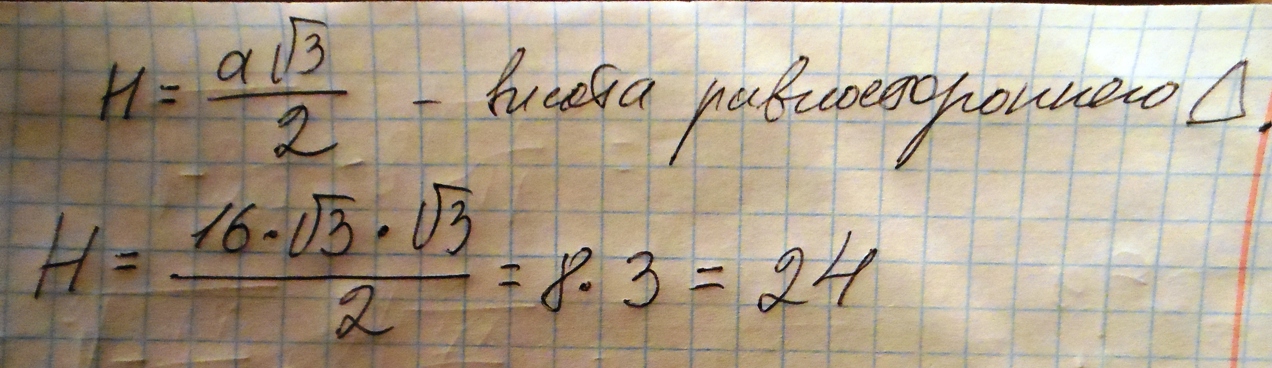 H = a√3/2 - высота равностороннего Δ.
H = 16·√3·√3/2 = 8·3 = 24